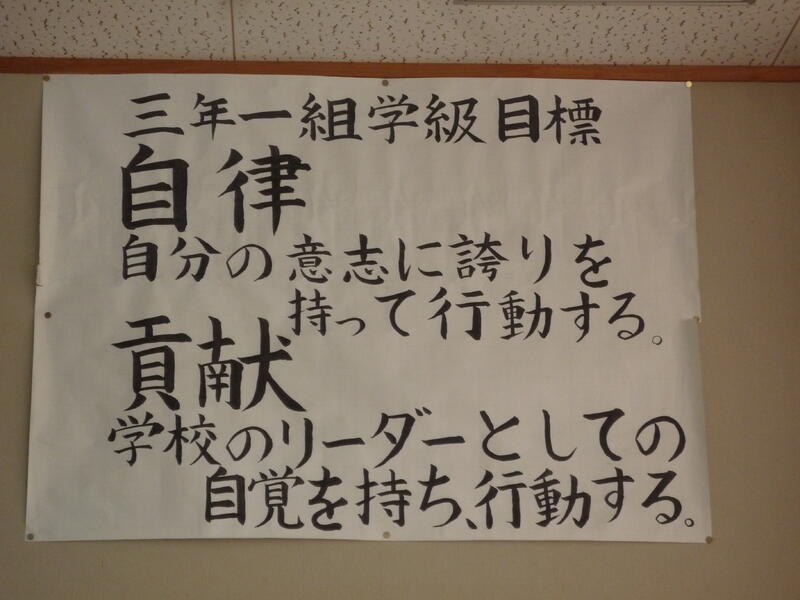 三年一組学級目標
自律
自分の意志に誇りを
持って行動する。
貢献
学校のリーダーとしての
自覚を持ち、行動する。